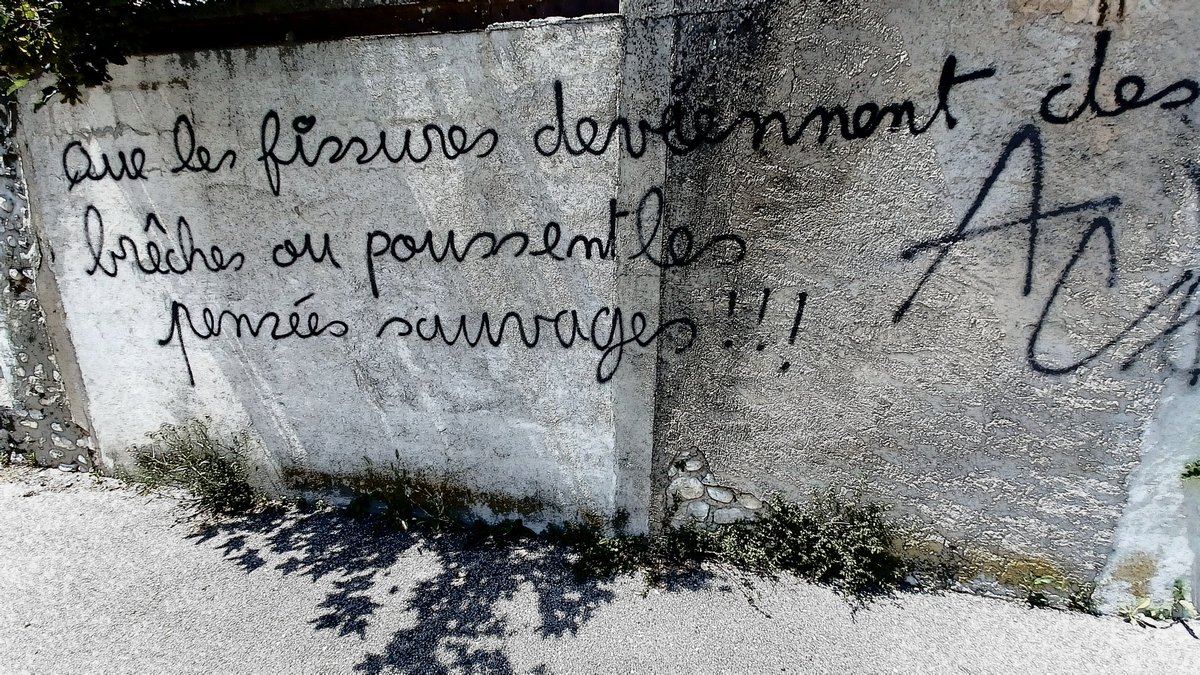 que les fissures deviennent des
brêches ou poussent les
pensées sauvages !!!